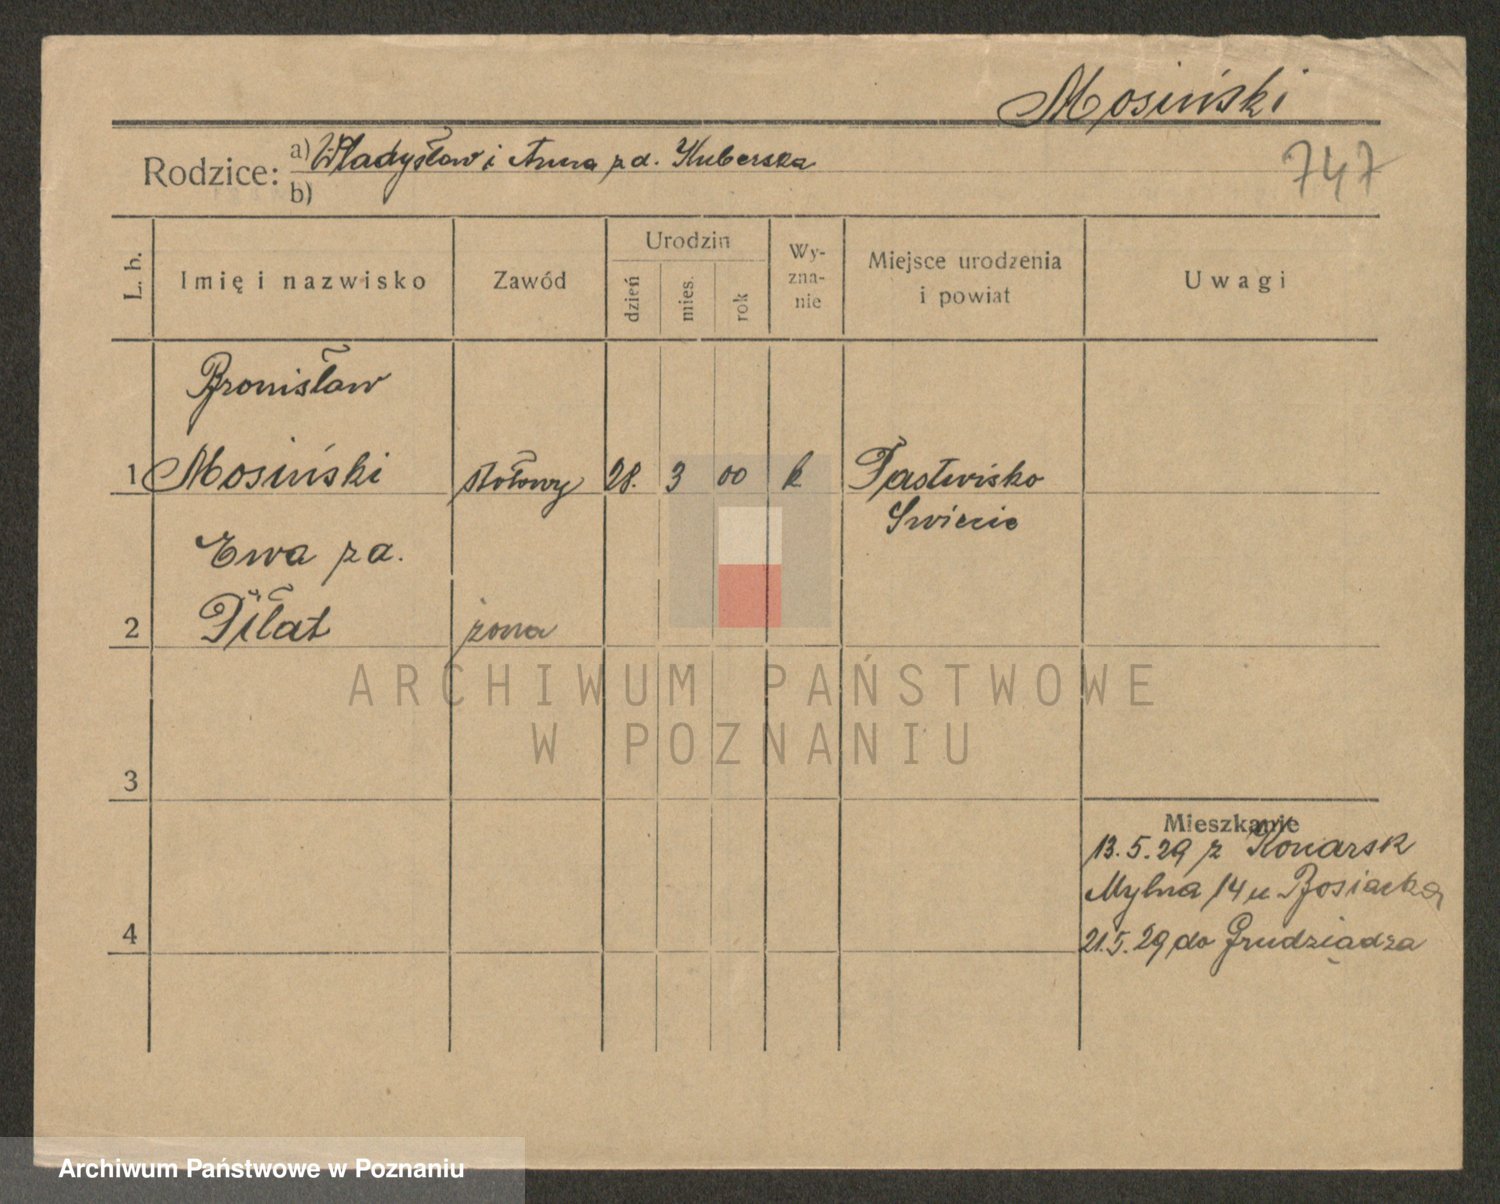 Mosiński
747
Rodzice: a) Władysław i Anna z d. Kuberska
b)
L. b.
Imię i nazwisko
Zawód
Urodzin
dzień
mies.
rok
Wy-
zna-
nie
Miejsce urodzenia
i powiat
Uwagi
Bronisław
1 Mosiński stołowy 28. 3 00 k Pastwisko
Świecie
Ewa z d.
2 Piłat żona
ARCHIWUM PAŃSTWOWE
W POZNANIU
3
Mieszkanie
13.5.29 z Konarsk
Mylna 14 u Bosiacka
4
21.5.29 do Grudziądza
Archiwum Państwowe w Poznaniu